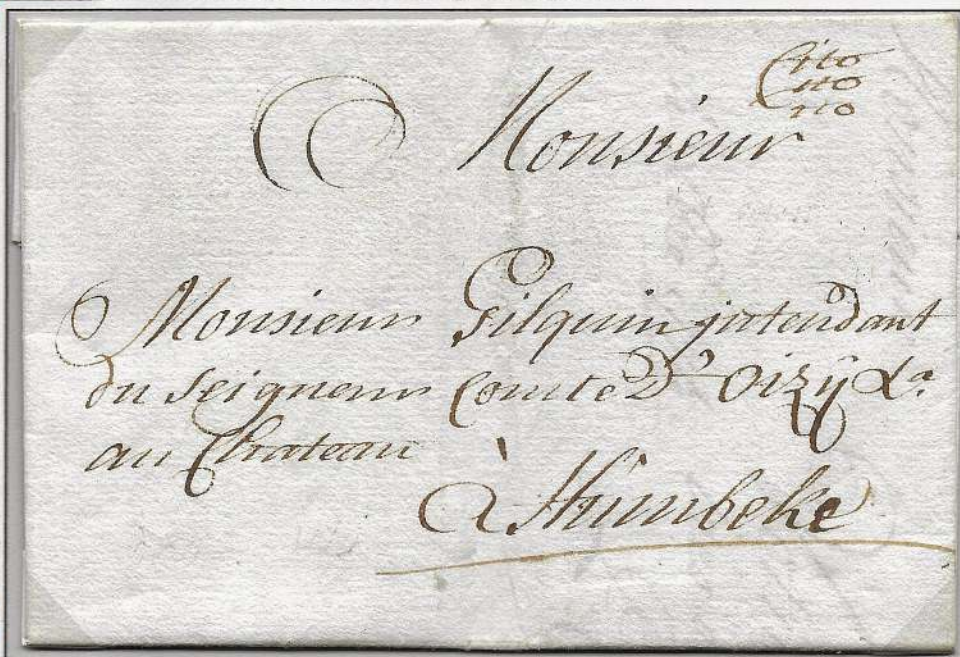 Cito
ito
ito
Monsieur
Monsieur Gilquin jntendant
du seigneur Comte D'Oizÿ &a
au Chateau
à Humbeke